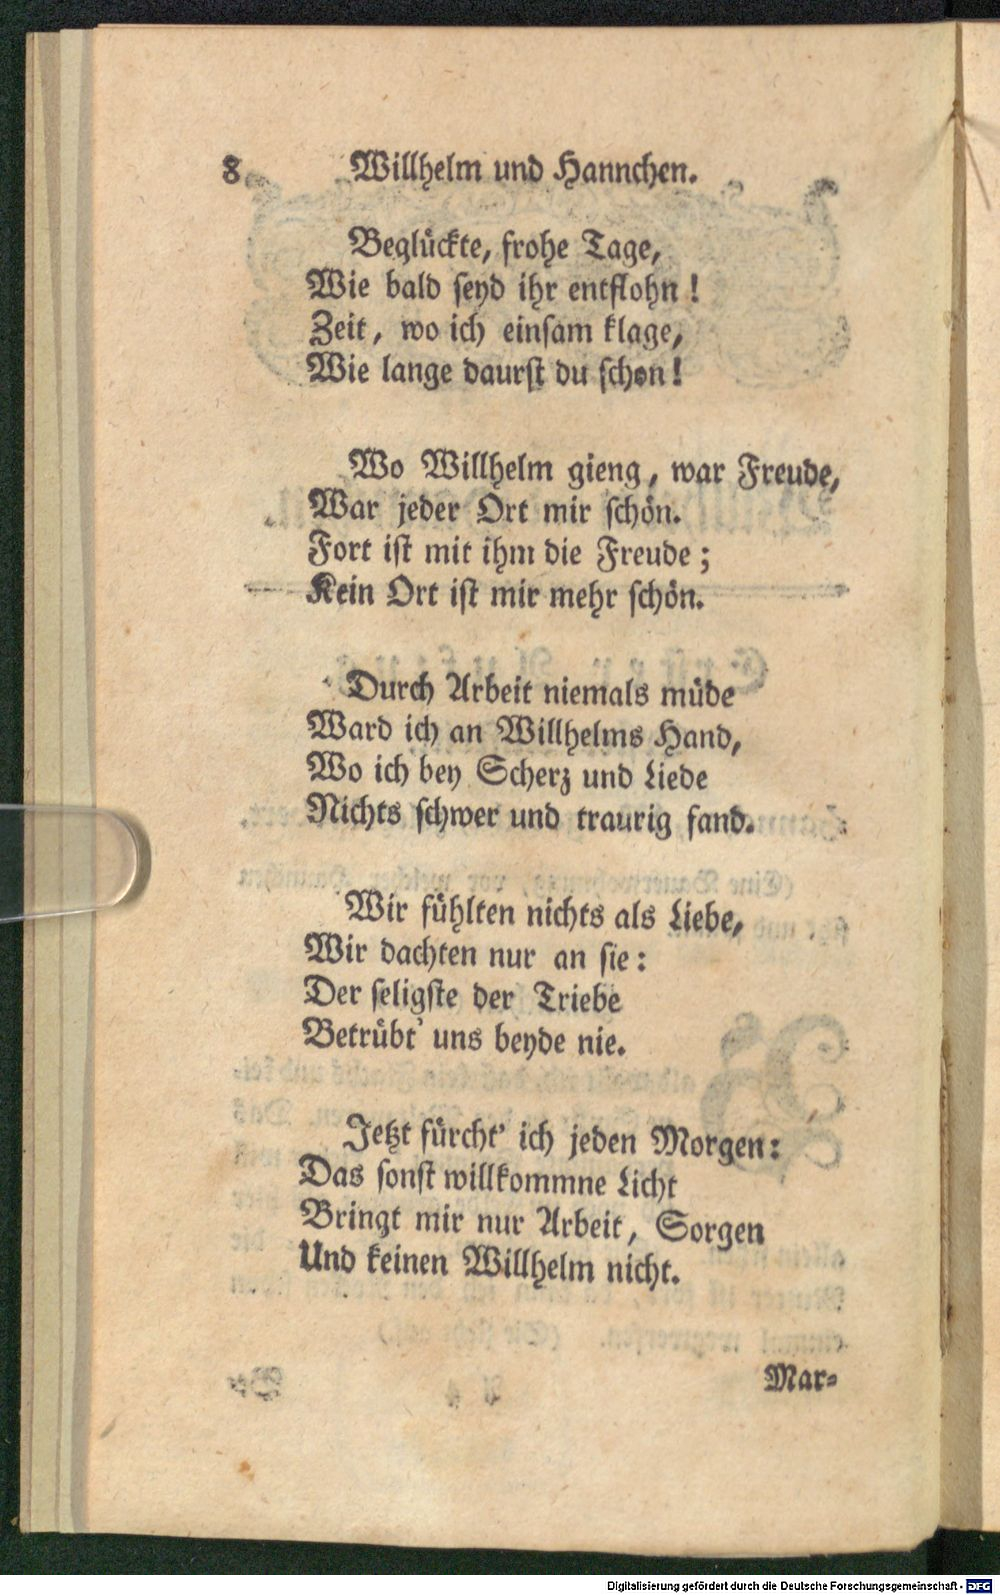 8 Willhelm und Hannchen.
Beglückte, frohe Tage,
Wie bald seyd ihr entflohn!
Zeit, wo ich einsam klage,
Wie lange daurst du schon!
Wo Willhelm gieng, war Freude,
War jeder Ort mir schön.
Fort ist mit ihm die Freude;
Kein Ort ist mir mehr schön.
Durch Arbeit niemals müde
Ward ich an Willhelms Hand,
Wo ich bey Scherz und Liede
Nichts schwer und traurig fand.
Wir fühlten nichts als Liebe,
Wir dachten nur an sie:
Der seligste der Triebe
Betrübt' uns beyde nie.
Jetzt fürcht' ich jeden Morgen:
Das sonst willkommne Licht
Bringt mir nur Arbeit, Sorgen
Und keinen Willhelm nicht.
Mar-
Digitalisierung gefördert durch die Deutsche Forschungsgemeinschaft - DFG